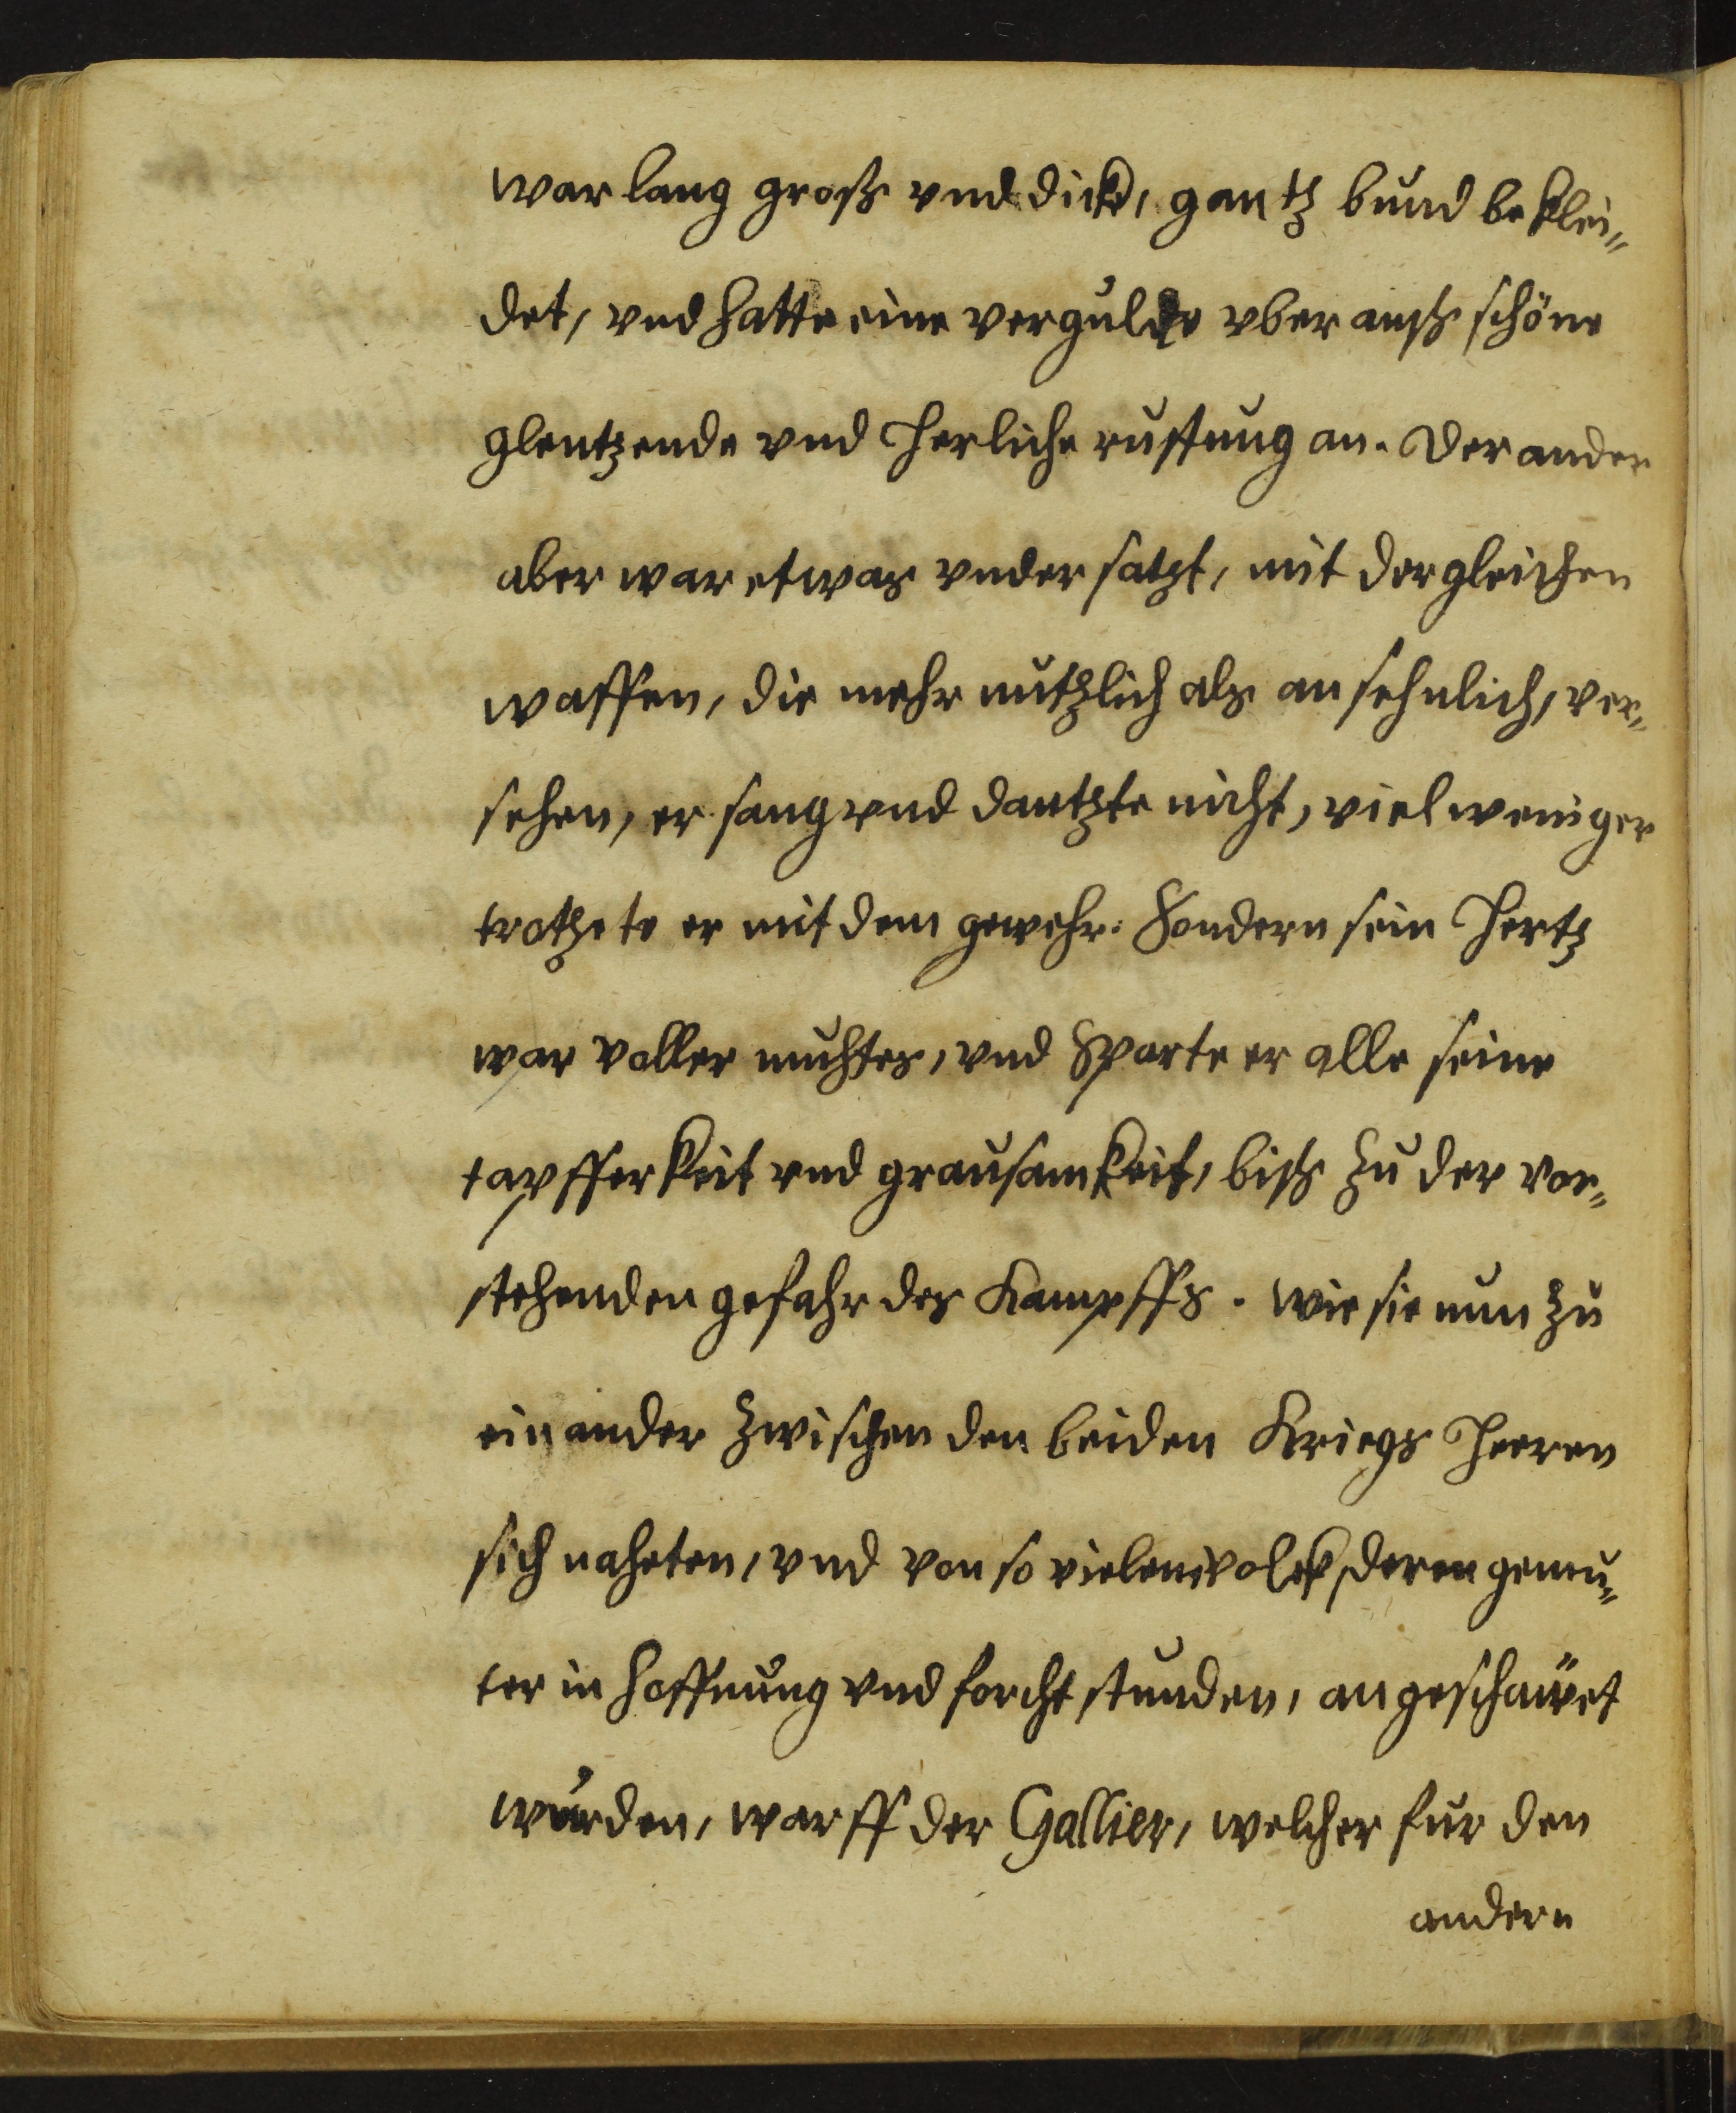 war lang groß vnd dick, gantz bund beklei„
det, vnd hatte eine vergulde vber auß schöne
glentzende vnd herliche rustung an. Der ander
aber war etwas vndersatzt, mit dergleichen
waffen, die mehr nutzlich als ansehnlich, ver„
sehen, er sang vnd dantzte nicht, viel weniger
trotzete er mit dem gewehr: Sondern sein Hertz
war voller muhtes, vnd Sparte er alle seine
tapfferkeit vnd grausamkeit, biß zu der vor„
stehenden gefahr des Kampffs. Wie sie nun zu
einander zwischen den beiden Kriegs Heeren
sich naheten, vnd von so vielem volck, deren gemu„
ter in hoffnung vnd forcht stunden, angeschawet
wurden, warff der Gallier, welcher fur den
andern